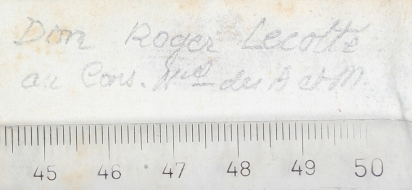 Don Roger Lecotté
au Cons. Nal des A et M.
45 46 47 48 49 50